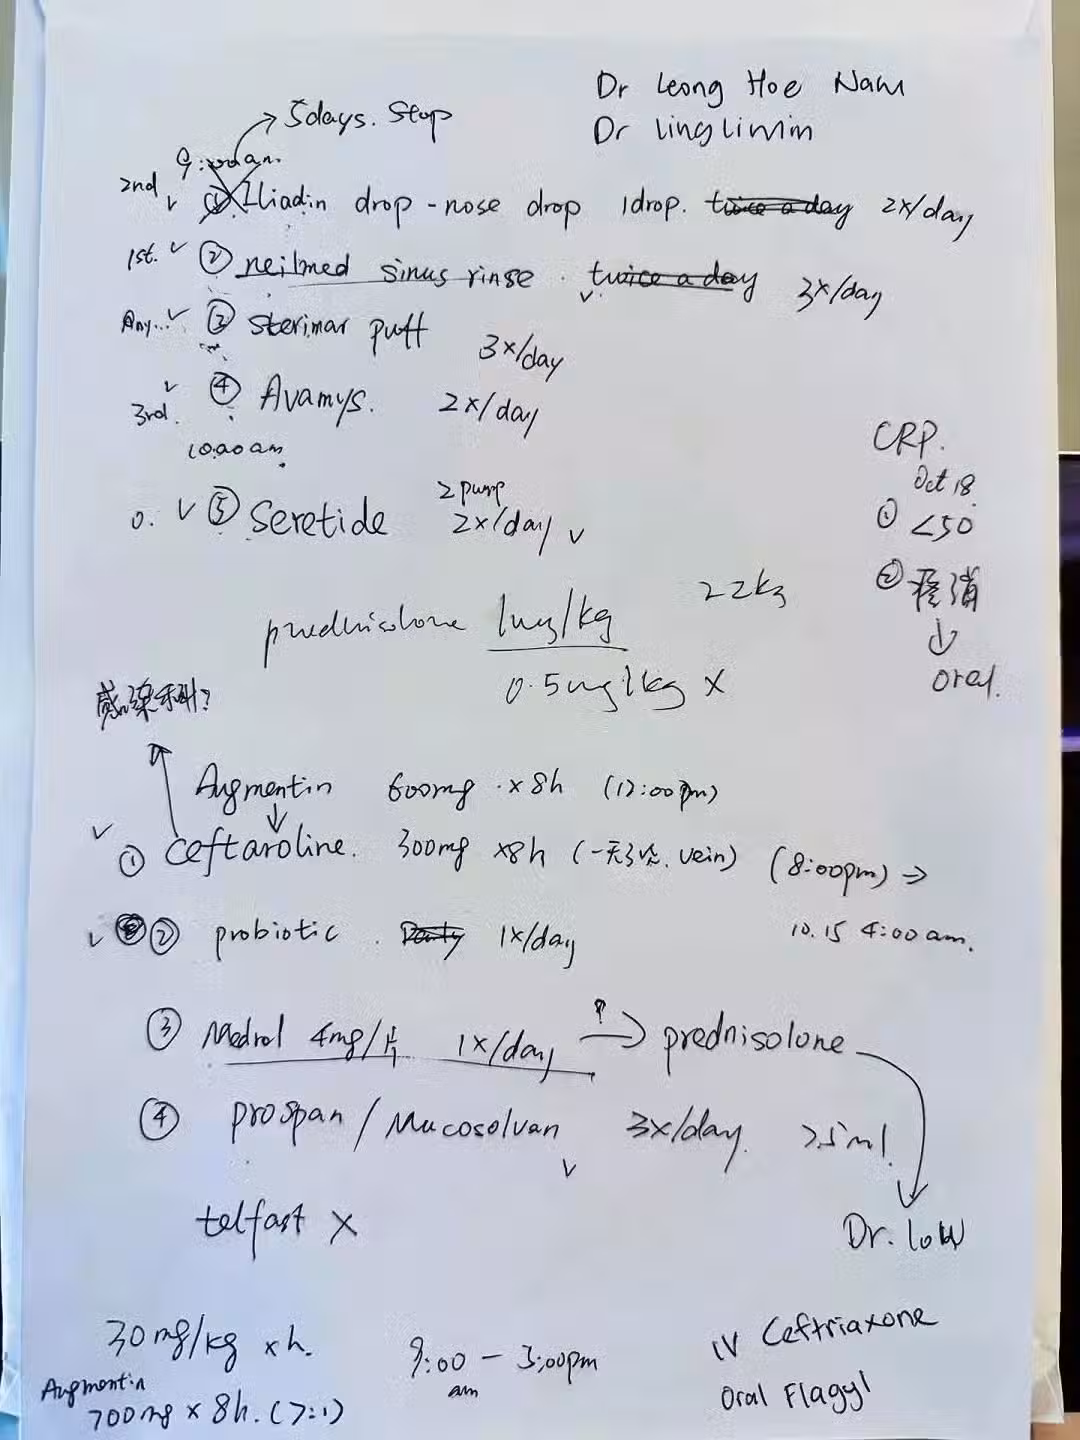 Dr Leong Hoe Nam
Dr Ling Li Min
5days. Stop
9:00am.
2nd ✓ ① Iliadin drop - nose drop 1drop. twice a day 2x/day
1st. ✓ ② neilmed sinus rinse. twice a day 3x/day
Any.. ✓ ③ sterimar puff 3x/day
3rd. ✓ ④ Avamys. 2x/day
10:00am.
CRP.
Oct 18
① <50
② 消
↓
oral.
0. ✓ ⑤ Seretide 2 pump 2x/day ✓
prednisolone 1mg/kg 22kg
0.5mg/kg X
感染科?
Augmentin 600mg x8h (12:00pm)
↓
✓ ① Ceftaroline. 300mg x8h (一天3次. vein) (8:00pm) →
10.15 4:00am.
✓ ② probiotic. 1x/day
③ Medrol 4mg/片 1x/day ? → prednisolone
④ prospan / Mucosolvan 3x/day. ml.
✓
telfast X
Dr. Low
30mg/kg xh.
Augmentin
700mg x 8h. (7:1)
9:00 am - 3:00pm
IV Ceftriaxone
Oral Flagyl